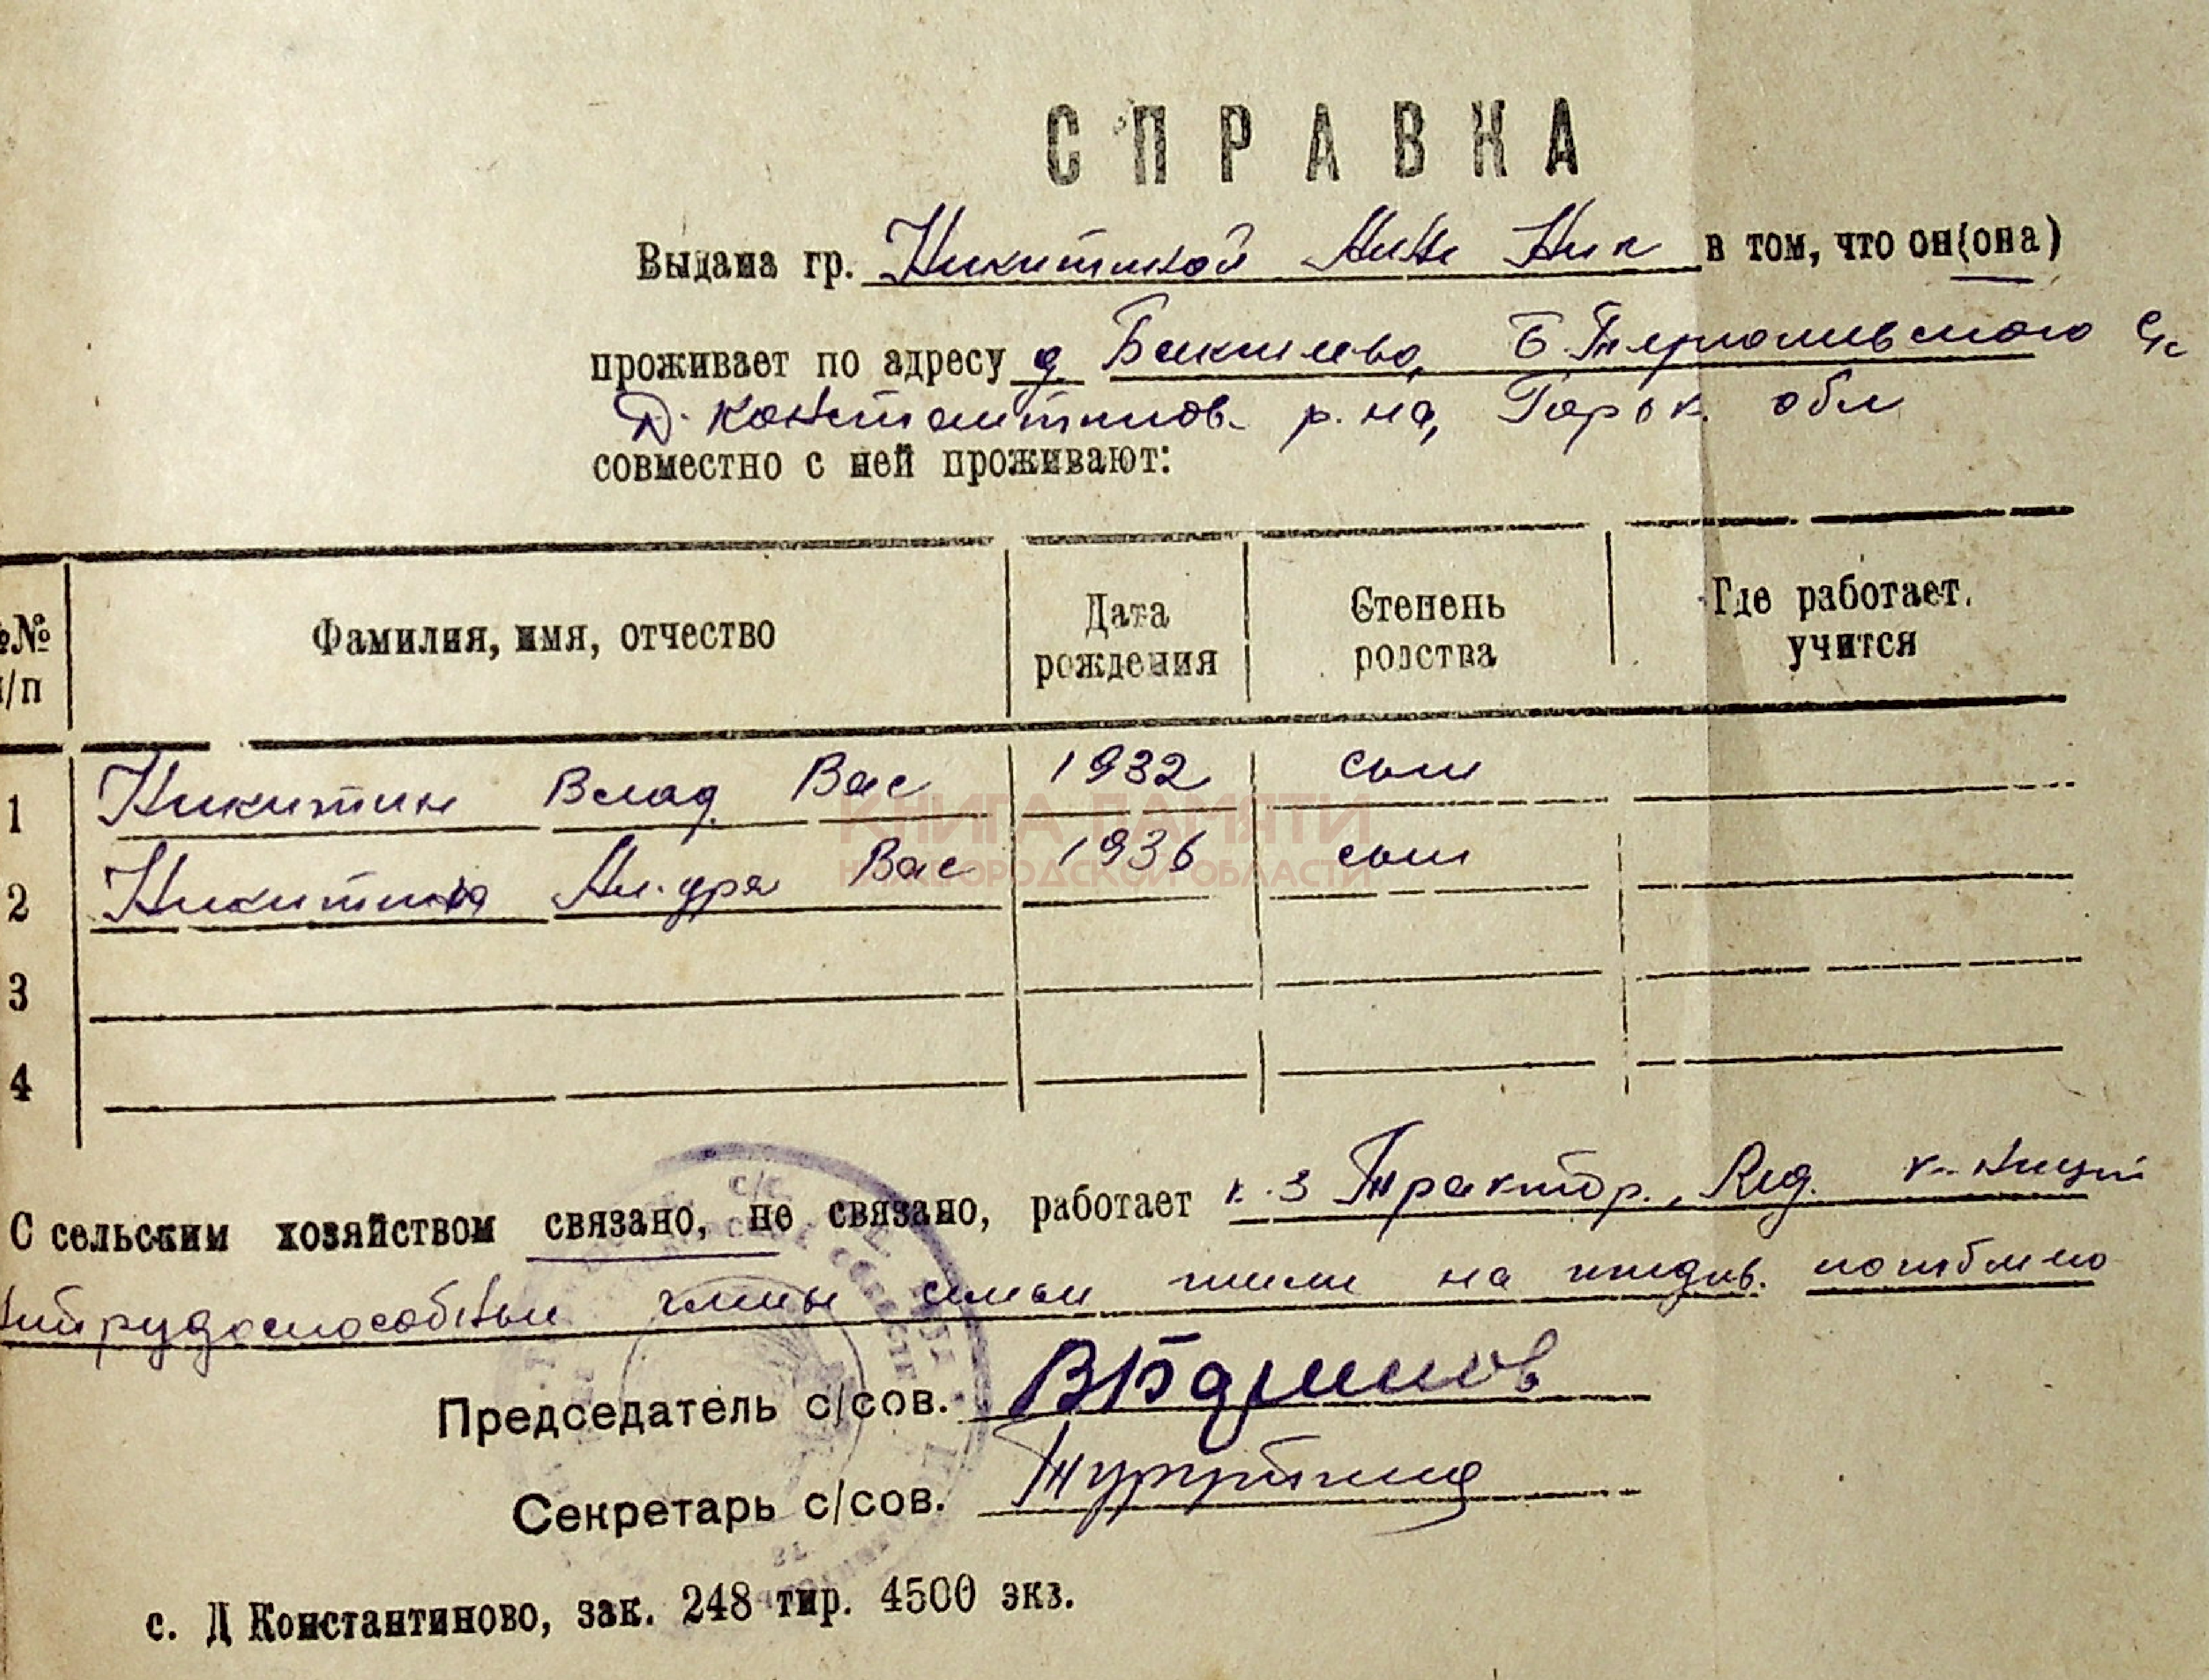 СПРАВКА
Выдана гр. Никитиной Анне Ник в том, что он(она)
проживает по адресу д. Бакшеево, Б. Терюшевского С/с
Д. Константинов. р-на, Горьк. обл
совместно с ней проживают:
№№ п/п Фамилия, имя, отчество Дата рождения Степень родства Где работает, учится
1 Никитин Влад. Вас 1932 сын
2 Никитин Ал-др Вас 1936 сын
3
4
КНИГА ПАМЯТИ
НИЖЕГОРОДСКОЙ ОБЛАСТИ
С сельским хозяйством связано, не связано, работает к-з Трактор.,
нетрудоспособные члены семьи жили на иждив. погибшего
Председатель с/сов.
Секретарь с/сов.
с. Д Константиново, зак. 248 тир. 4500 экз.